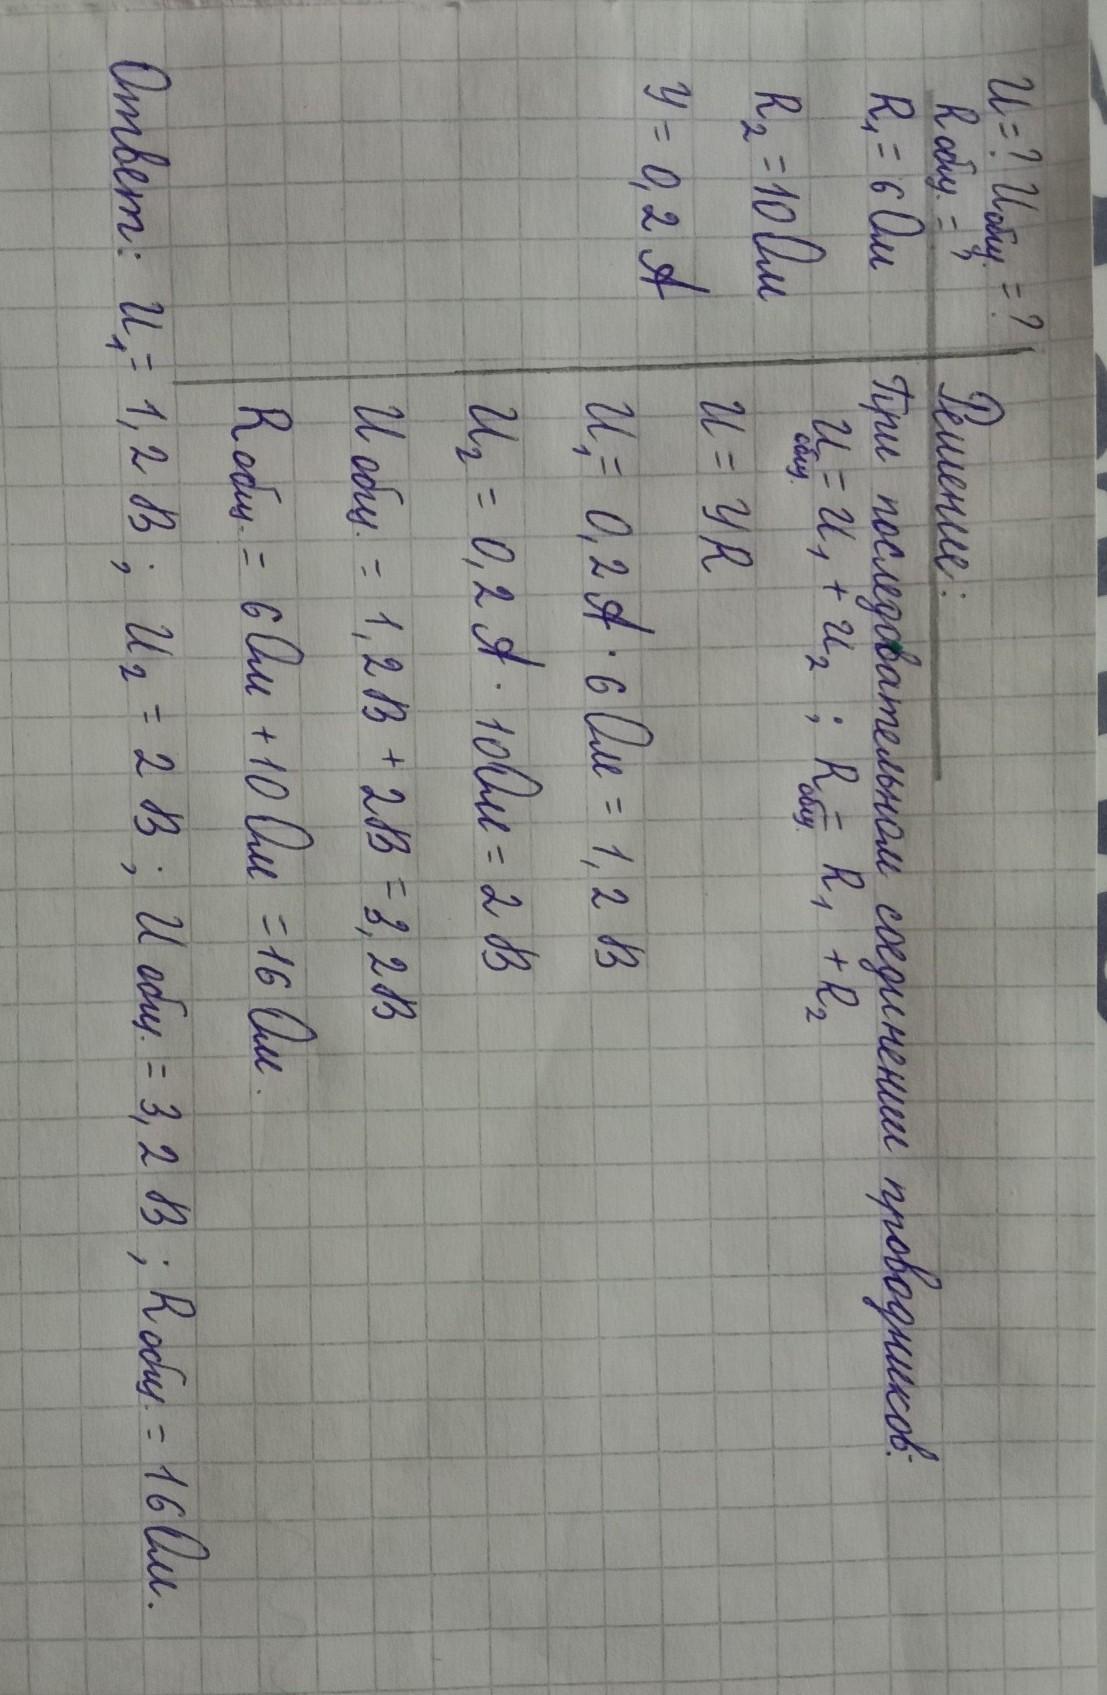 U=? Uобщ.=?
Rобщ.=?
R₁=6 Ом
R₂=10 Ом
У=0,2 А
Решение:
При последовательном соединении проводников:
Uобщ.=U₁+U₂; Rобщ.=R₁+R₂
U=УR
U₁=0,2 А·6 Ом=1,2 В
U₂=0,2 А·10 Ом=2 В
Uобщ.=1,2 В+2 В=3,2 В
Rобщ.=6 Ом+10 Ом=16 Ом.
Ответ: U₁=1,2 В; U₂=2 В; Uобщ.=3,2 В; Rобщ.=16 Ом.